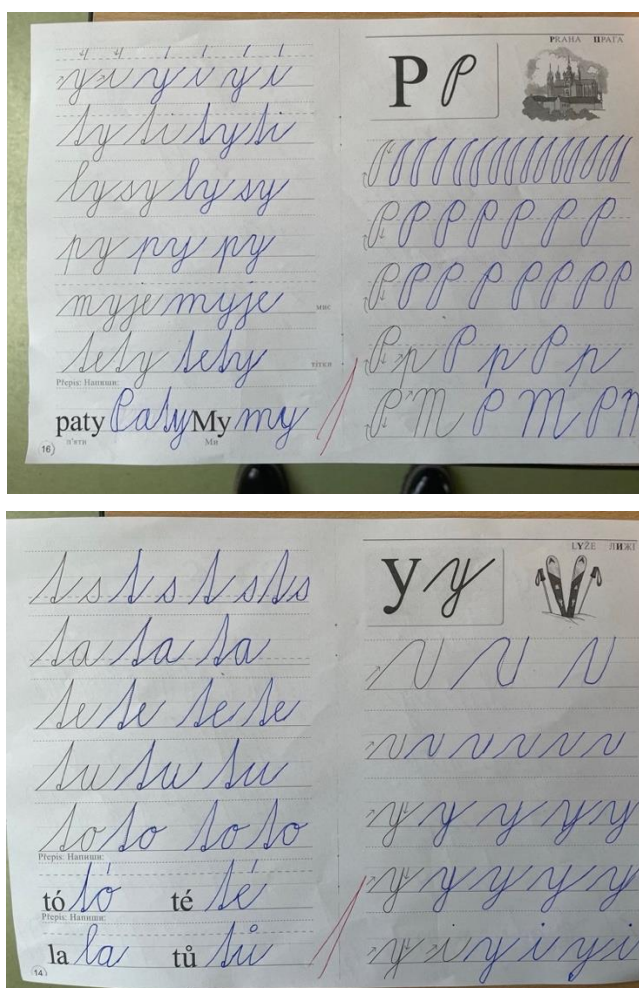 ý í ý í ý í
ty ti ty ti
ly sy ly sy
py py py
myje myje миє
tety tety тітки
Přepis: Напиши:
paty Paty My my
п'яти Ми
16
PRAHA ПРАГА
P P
P P P P P P P
P P P P P P P P
P p P p P p
P M P M P M
t s t s t s t s
ta ta ta
te te te te
tu tu tu
to to to to
Přepis: Напиши:
tó tó té té
Přepis: Напиши:
la la tů tů
14
LYŽE ЛИЖІ
y y
y y y y y
y y y y y
y i y i y i